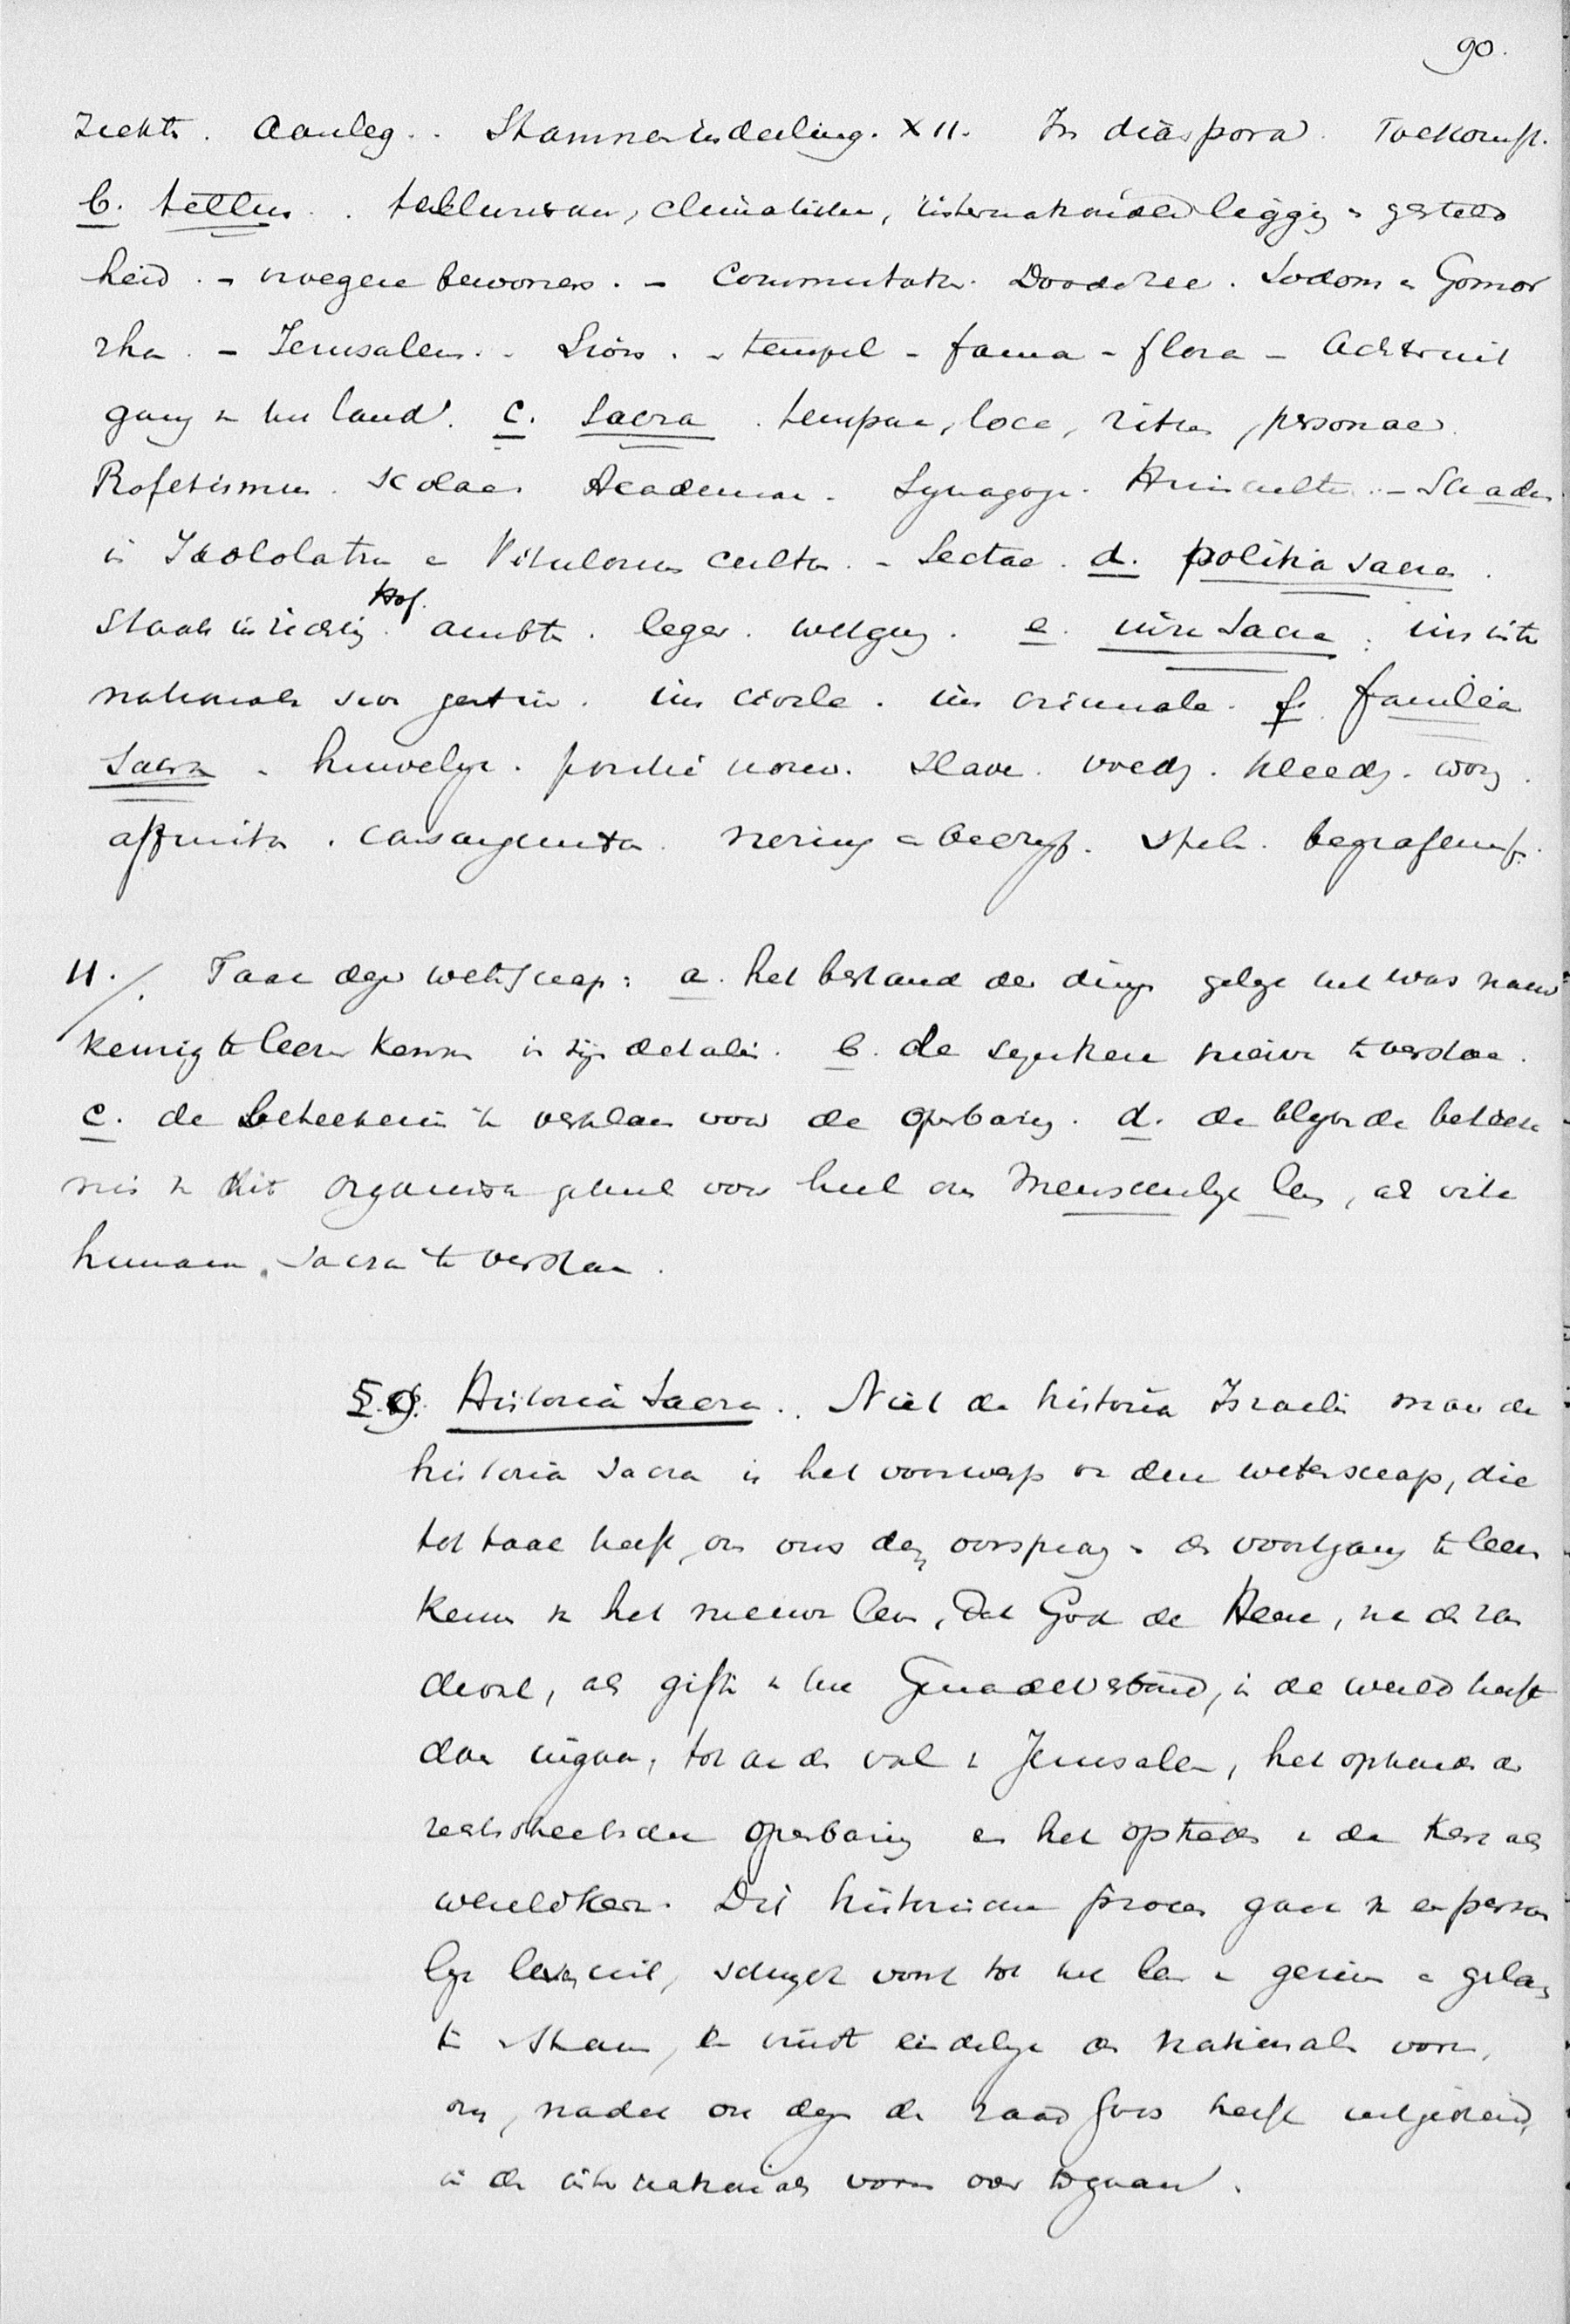 90.
Ziekte. Aanleg. Stammenindeeling. XII. In diaspora. Toekomst.
b. tellus. tellurische, climatische, internationale ligging & gesteld
heid. - vroegere bewoners. - Commutatie. Doode zee. Sodom & Gomor
rha. - Jerusalem. - Sion. - tempel - fauna - flora - Achteruit
gang v het land. c. Sacra. tempora, loca, ritus, personae.
Profetismus. scolae. Academiae. Synagoge. - Schaden
in Idololatrie & Vitulorum cultus. - Sectae. d. politia sacra.
Staatsinrichting. Hof. ambten. leger. wetgeving. e. iura Sacra: ius inter
nationale sive gentium. ius civile. ius criminale. f. familia
sacra. huwelijk. positie vrouw. slaven. voeding. kleeding. woning.
affinitas. consanguinitas. nering & bedrijf. spelen. begrafenis.
11./. Taak dezer wetenschap: a. het bestand der dingen gelijk het was nauw
keurig te leeren kennen in zijn details. b. de specifieke nieuwe te verstaan.
c. de beteekenis te verklaren voor de openbaring. d. de blijvende beteeke
nis v dit organisch geheel voor heel ons menschelijk leven, als vita
humana sacra te verstaan.
§.9. Historia Sacra. Niet de historia Israelis maar de
historia sacra is het voorwerp van deze wetenschap, die
tot taak heeft, om ons den oorsprong & de voortgang te leeren
kennen v het nieuwe leven, dat God de Heere, na de zon
deval, als gifte v het Genadeverbond, in de wereld heeft
doen ingaan, tot aan de val v Jerusalem, het ophouden der
rechtstreeksche openbaring en het optreden v de Kerk als
wereldkerk. Dit historische proces gaat v een persoon
lijk leven uit, schrijdt voort tot het leven v gezin & geslacht
& stam, en vindt eindelijk de nationale vorm,
om, nadat ook deze de raad Gods heeft uitgediend,
in de internationale vorm over te gaan.